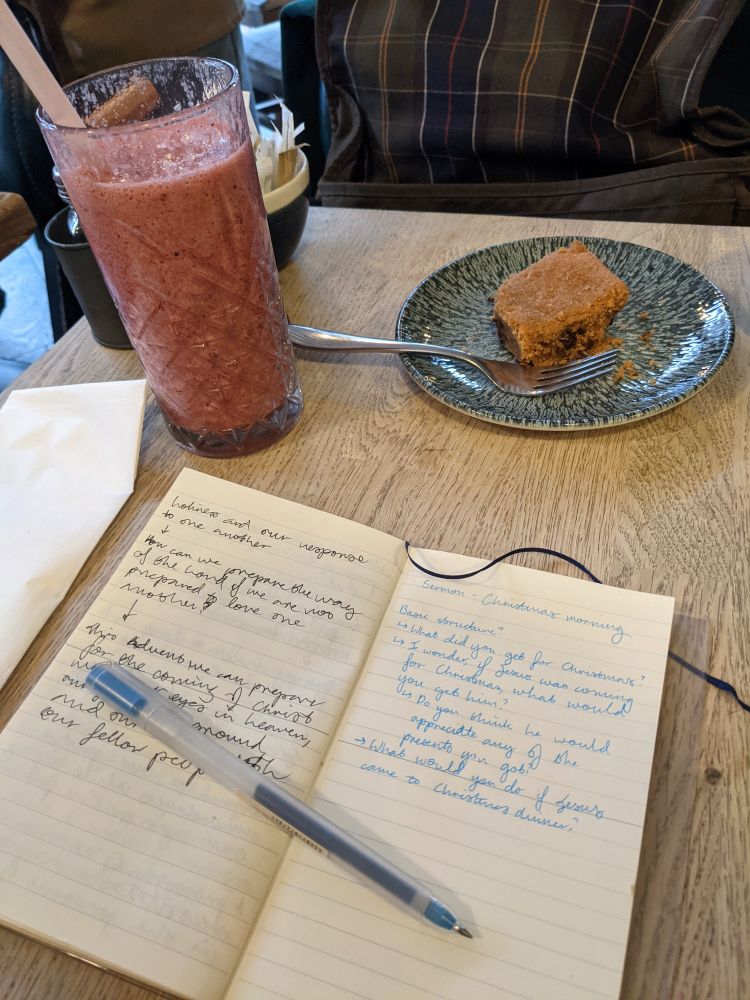 holiness and our response
to one another
↓
How can we prepare the way
of the Lord if we are not
prepared to love one
another?
↓
This Advent we can prepare
for the coming of Christ
eyes in heaven,
and our around
our fellow
Sermon - Christmas morning
Basic structure?
↳ What did you get for Christmas?
↳ I wonder, if Jesus was coming
for Christmas, what would
you get him?
↳ Do you think he would
appreciate any of the
presents you got?
→ What would you do if Jesus
came to Christmas dinner?